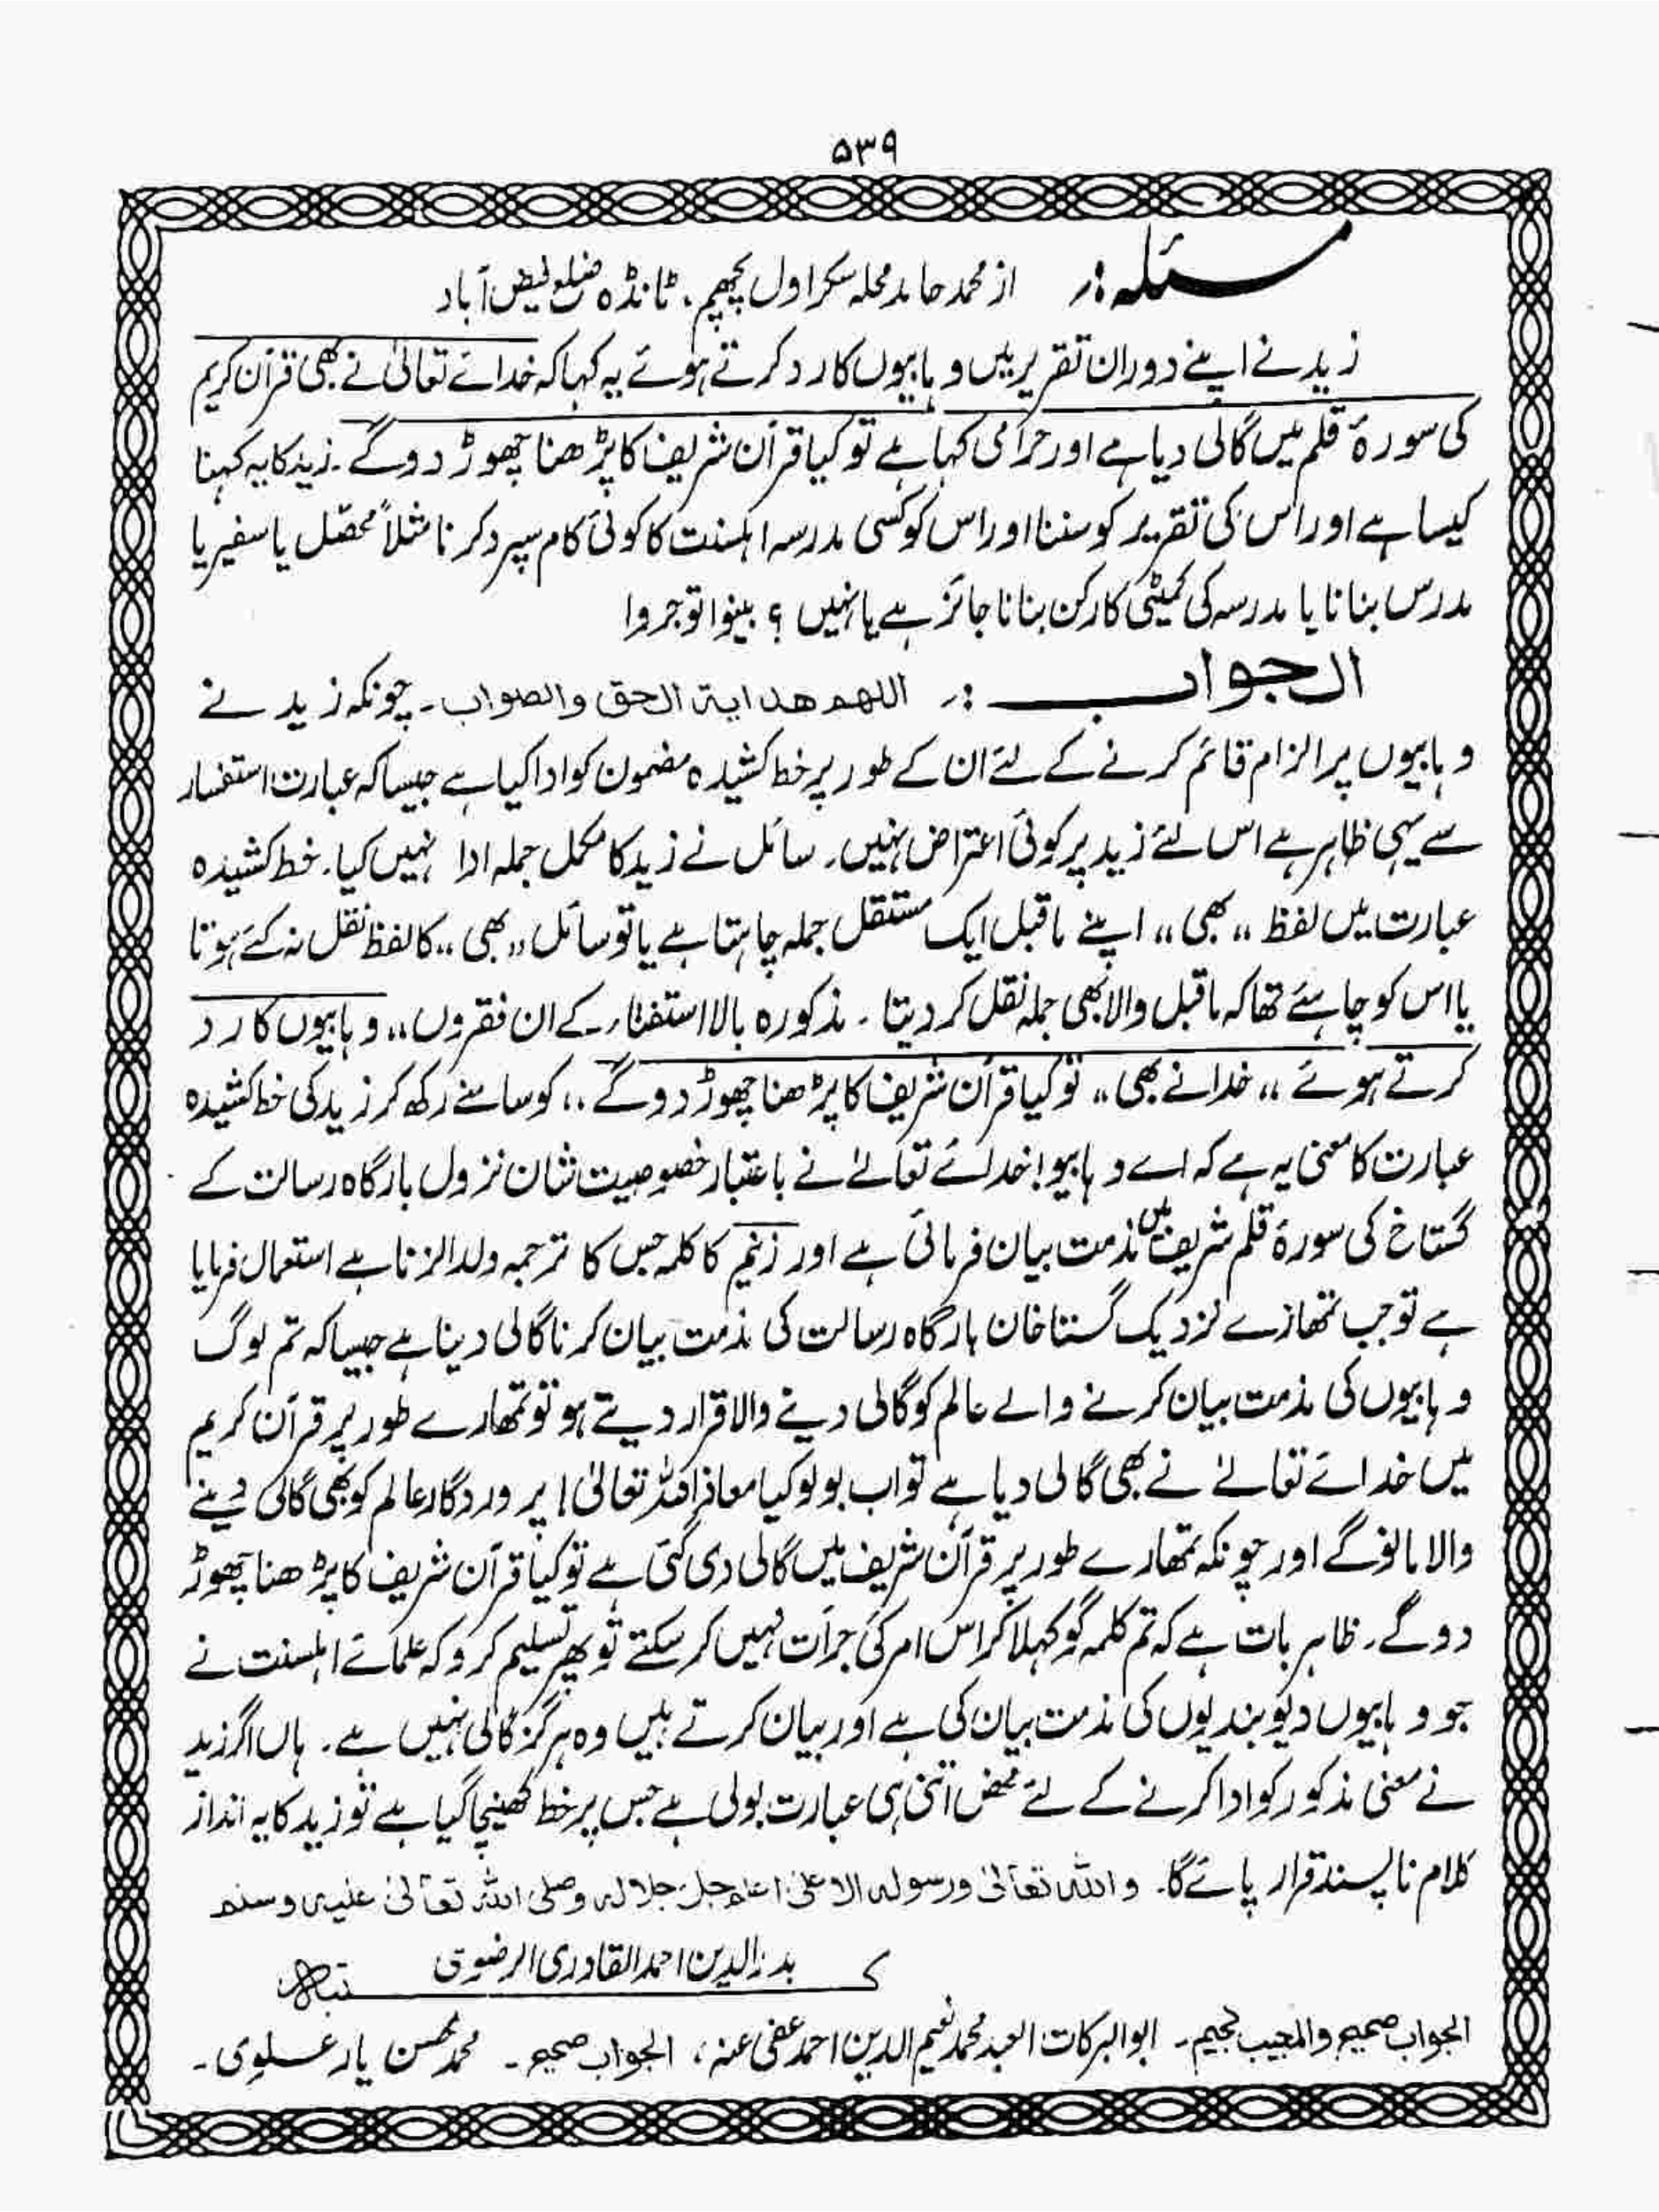 ۵۳۹
مسئلہ:۔ از محمد حامد محلہ سکراول پچھم، ٹانڈہ ضلع فیض آباد
زید نے اپنے دوران تقریر میں وہابیوں کا رد کرتے ہوئے یہ کہا کہ خدائے تعالیٰ نے بھی قرآن کریم
کی سورۂ قلم میں گالی دیا ہے اور حرامی کہا ہے تو کیا قرآن شریف کا پڑھنا چھوڑ دو گے۔ زید کا یہ کہنا
کیسا ہے اور اس کی تقریر کو سننا اور اس کو کسی مدرسہ اہلسنت کا کوئی کام سپرد کرنا مثلاً محصّل یا سفیر یا
مدرس بنانا یا مدرسہ کی کمیٹی کا رکن بنانا جائز ہے یا نہیں ؟ بینوا توجروا
الجواب :۔ اللھم ھدایۃ الحق والصواب۔ چونکہ زید نے
وہابیوں پر الزام قائم کرنے کے لئے ان کے طور پر خط کشیدہ مضمون کو ادا کیا ہے جیسا کہ عبارت استفسار
سے یہی ظاہر ہے اس لئے زید پر کوئی اعتراض نہیں۔ سائل نے زید کا مکمل جملہ ادا نہیں کیا۔ خط کشیدہ
عبارت میں لفظ ,, بھی ,, اپنے ماقبل ایک مستقل جملہ چاہتا ہے یا تو سائل ,, بھی ,, کا لفظ نقل نہ کئے ہوتا
یا اس کو چاہئے تھا کہ ماقبل والا بھی جملہ نقل کر دیتا ۔ مذکورہ بالا استفتاء کے ان فقروں ,, وہابیوں کا رد
کرتے ہوئے ,, خدا نے بھی ,, تو کیا قرآن شریف کا پڑھنا چھوڑ دو گے ,, کو سامنے رکھ کر زید کی خط کشیدہ
عبارت کا معنی یہ ہے کہ اے وہابیو! خدائے تعالےٰ نے باعتبار خصوصیت شان نزول بارگاہ رسالت کے
گستاخ کی سورۂ قلم شریف میں مذمت بیان فرمائی ہے اور زنیم کا کلمہ جس کا ترجمہ ولد الزنا ہے استعمال فرمایا
ہے تو جب تمھارے نزدیک گستاخان بارگاہ رسالت کی مذمت بیان کرنا گالی دینا ہے جیسا کہ تم لوگ
وہابیوں کی مذمت بیان کرنے والے عالم کو گالی دینے والا قرار دیتے ہو تو تمھارے طور پر قرآن کریم
میں خدائے تعالےٰ نے بھی گالی دیا ہے تو اب بولو کیا معاذ اللہ تعالیٰ! پروردگار عالم کو بھی گالی دینے
والا مانو گے اور چونکہ تمھارے طور پر قرآن شریف میں گالی دی گئی ہے تو کیا قرآن شریف کا پڑھنا چھوڑ
دو گے۔ ظاہر بات ہے کہ تم کلمہ گو کہلا کر اس امر کی جرأت نہیں کر سکتے تو پھر تسلیم کرو کہ علمائے اہلسنت نے
جو وہابیوں دیوبندیوں کی مذمت بیان کی ہے اور بیان کرتے ہیں وہ ہرگز گالی نہیں ہے۔ ہاں اگر زید
نے معنی مذکور کو ادا کرنے کے لئے محض اتنی ہی عبارت بولی ہے جس پر خط کھینچا گیا ہے تو زید کا یہ انداز
کلام ناپسند قرار پائے گا۔ واللہ تعالیٰ ورسولہ الاعلیٰ اعلم جل جلالہ وصلی اللہ تعالیٰ علیہ وسلم
کتبہ بدر الدین احمد القادری الرضوی
الجواب صحیح والمجیب نجیح۔ ابو البرکات العبد محمد نعیم الدین احمد عفی عنہ، الجواب صحیح۔ محمد محسن یار علوی۔